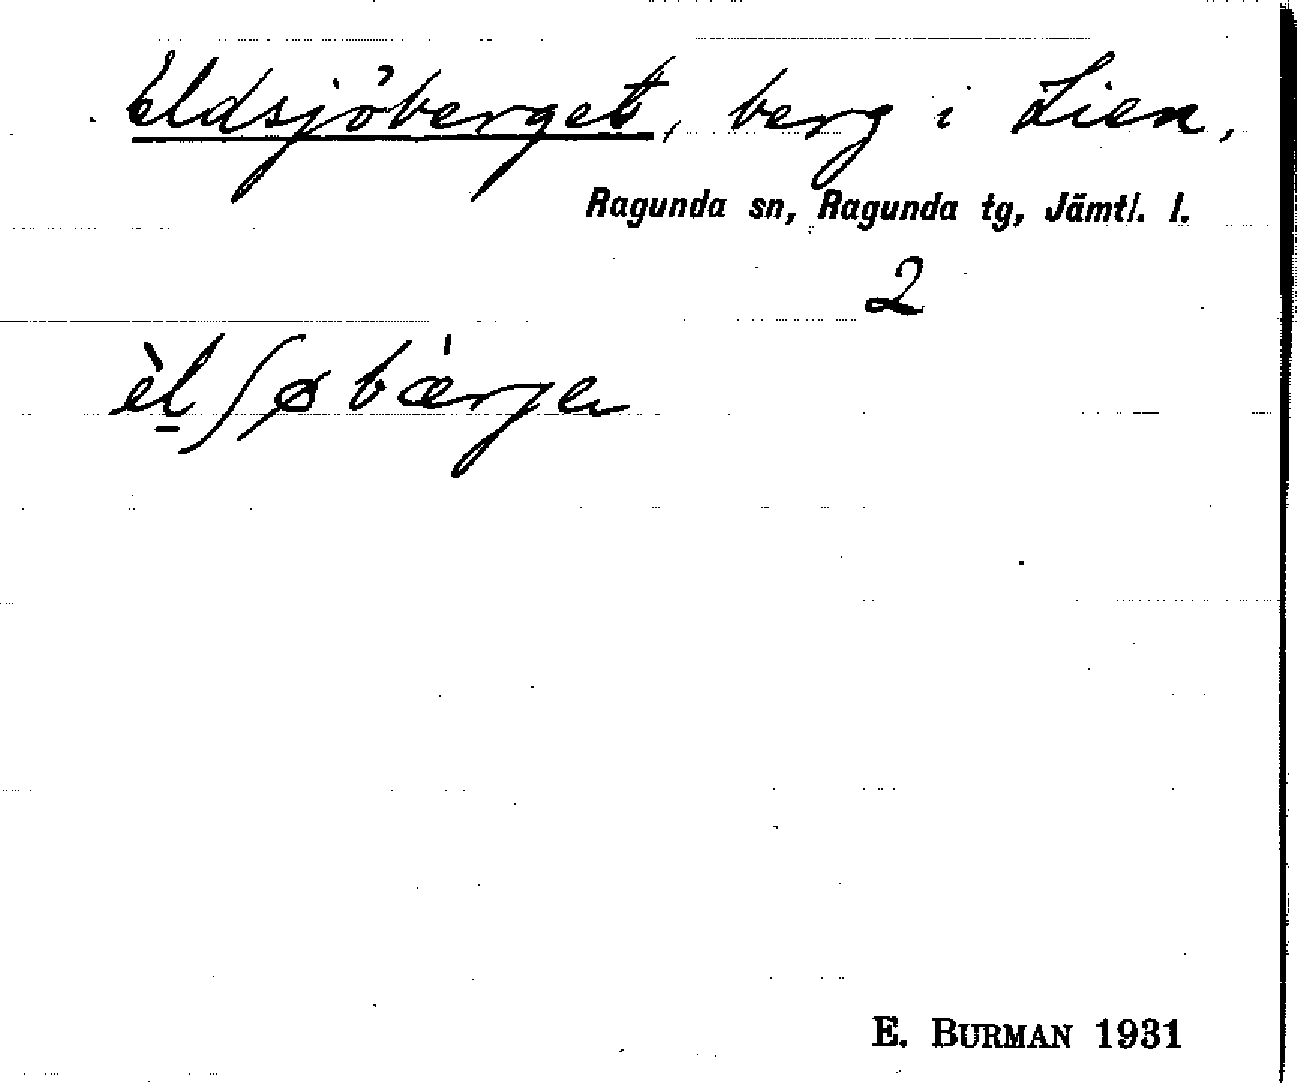 Eldsjöberget, berg i Lien,
Ragunda sn, Ragunda tg, Jämtl. l.
2
èl̠ʃøbæ̀rjen
E. BURMAN 1931